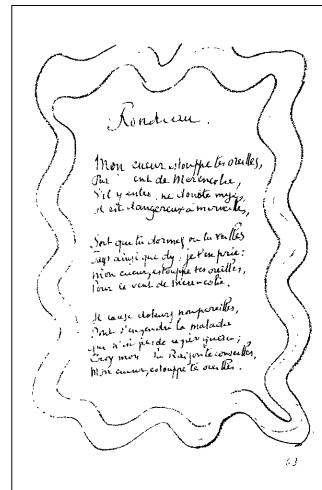 Rondeau.
Mon cueur, estouppe tes oreilles,
Pour de Merencolie,
S'il y entre, ne doubte mye,
Il est dangereux à merveilles,
Soit que tu dormes ou tu veilles
Fays ainsi que dy, je t'en prie:
Mon cueur, estouppe tes oreilles,
Pour le vent de Merencolie.
Il cause doleurs nonpareilles,
Dont s'engendre la maladie
Qui n'est pas de legier guerie;
Croy moy Raison te conseilles,
Mon cueur, estouppe tes oreilles.
63